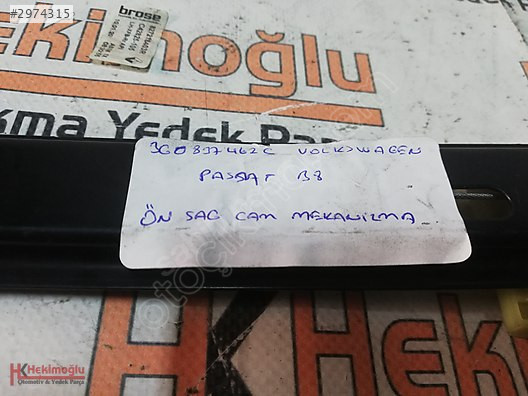 #2974315
brose
Hekimoğlu
kma Yedek Par
3G0837462C VOLKSWAGEN
PASSAT B8
ÖN SAG CAM MEKANIZMA
HK Hekimoğlu
HK Hekimoğlu
Otomotiv & Yedek Parça